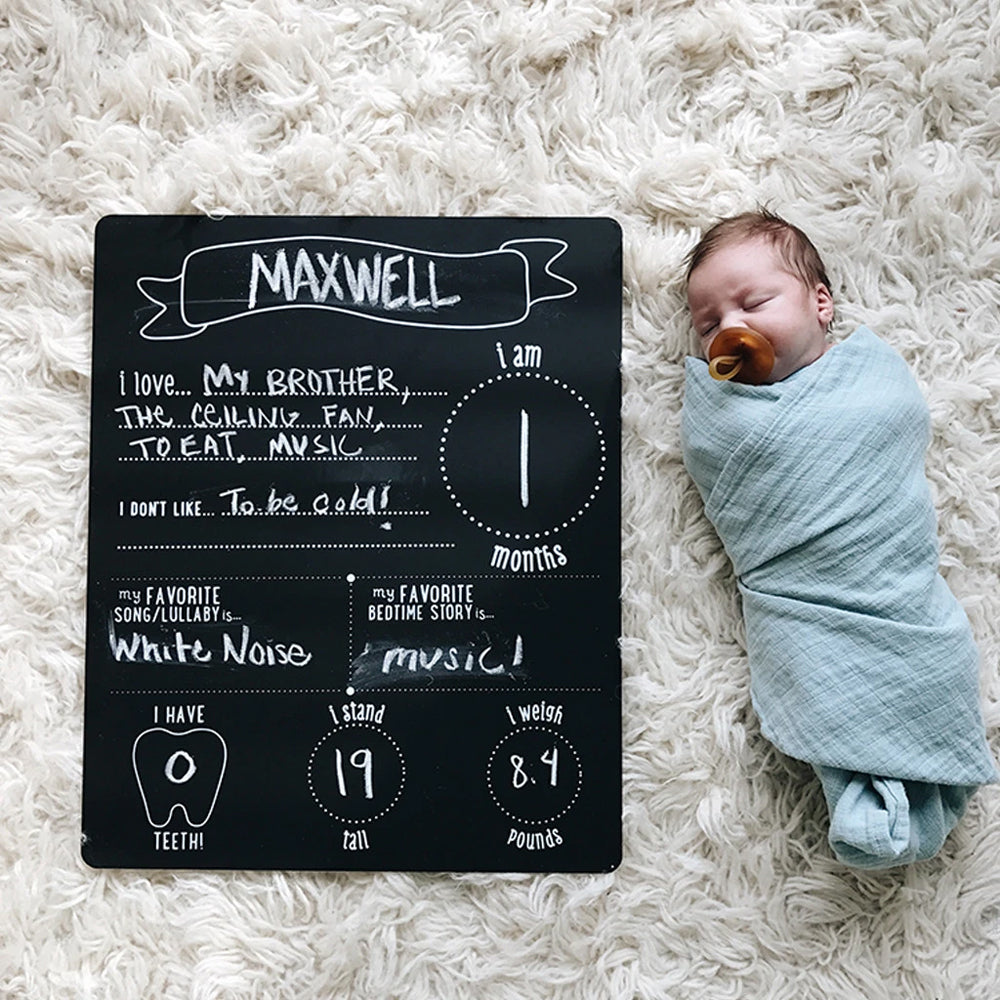 MAXWELL
i love... MY BROTHER,
THE CEILING FAN,
TO EAT, MUSIC
I DON'T LIKE... To be cold!
i am
1
months
my FAVORITE
SONG/LULLABY is...
White Noise
my FAVORITE
BEDTIME STORY is...
music!
I HAVE
0
TEETH!
i stand
19
tall
i weigh
8.4
pounds